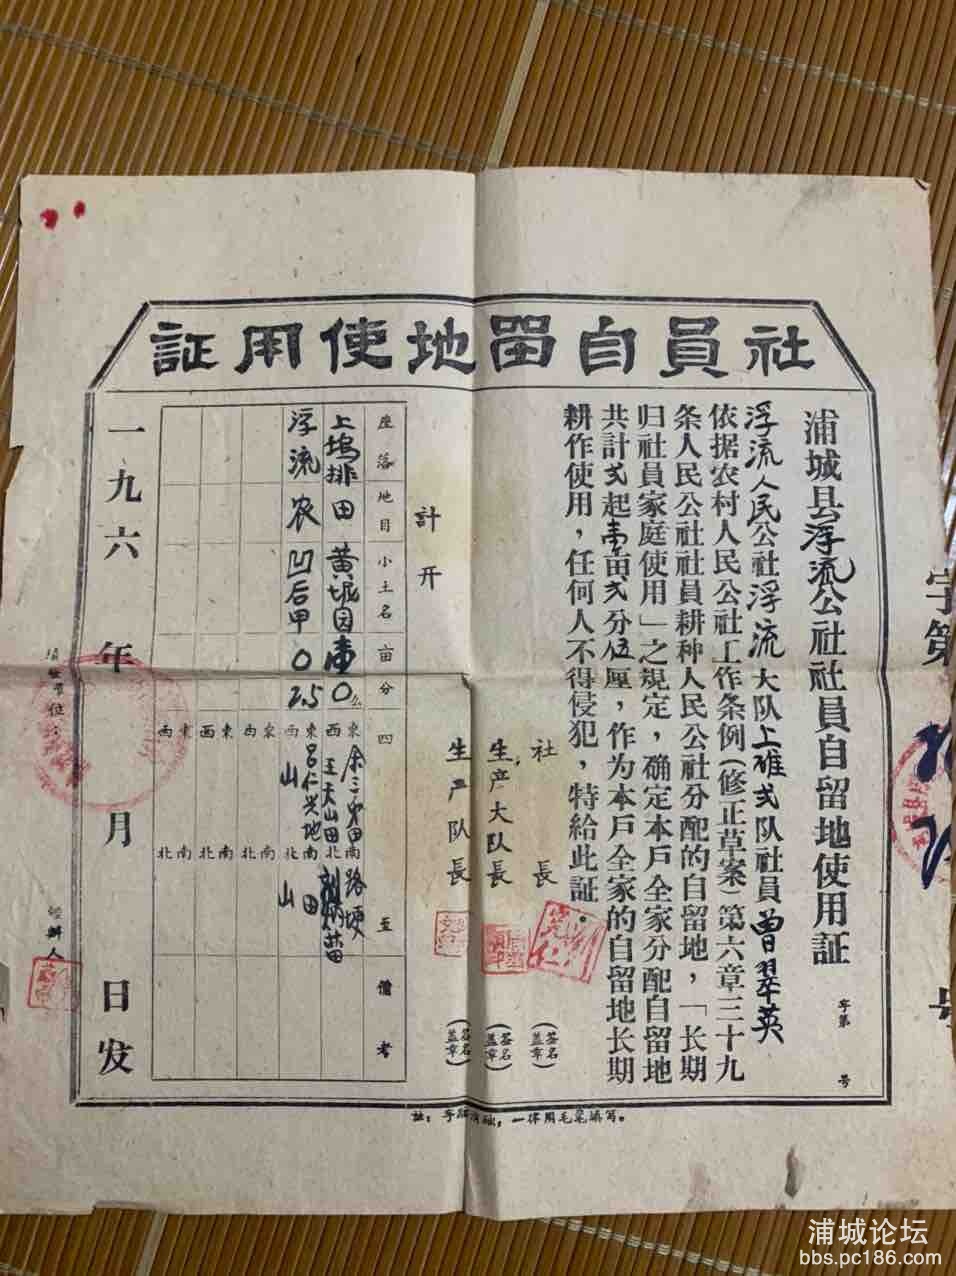 社員自畱地使用証
浦城县浮流公社社員自留地使用証
字第 号
浮流人民公社浮流大队上碓弍队社員曾翠英
依据农村人民公社工作条例(修正草案)第六章三十九
条人民公社社員耕种人民公社分配的自留地，「长期
归社員家庭使用」之規定，确定本戶全家分配自留地
共計弍起壹亩弍分伍厘，作为本戶全家的自留地长期
耕作使用，任何人不得侵犯，特給此証。
社長 (签名盖章)
生产大队長 (签名盖章)
生产队長 (签名盖章)
計开
座落 地目 小土名 亩分 四至 備考
上坞排 田 黄坭园 壹0 東 西 王天山田 南 路埂 北
浮流 农 凹后甲 0 2.5 東 呂仁兴地 西 山 南 田 北 山
東 西 南 北
東 西 南 北
東 西 南 北
一九六 年 月 日发
填發单位
經辦人
字第
号
浦城论坛
bbs.pc186.com